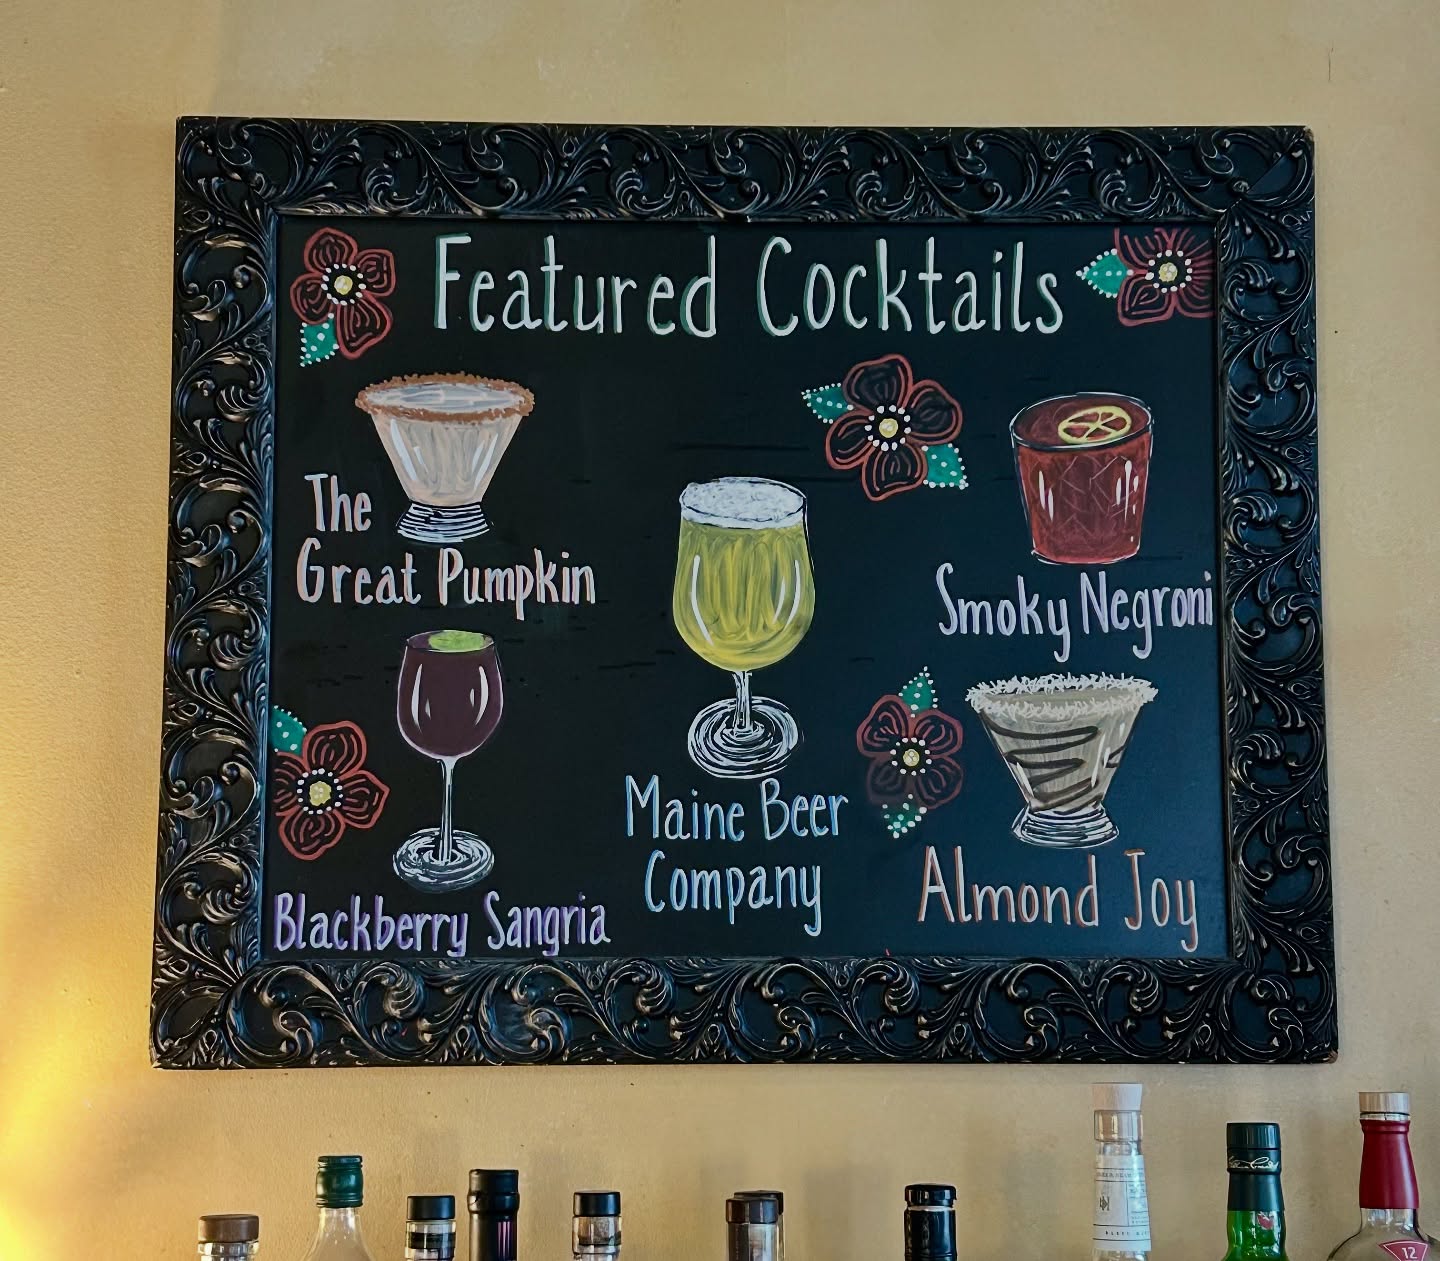 Featured Cocktails
The
Great Pumpkin
Smoky Negroni
Blackberry Sangria
Maine Beer
Company
Almond Joy
12